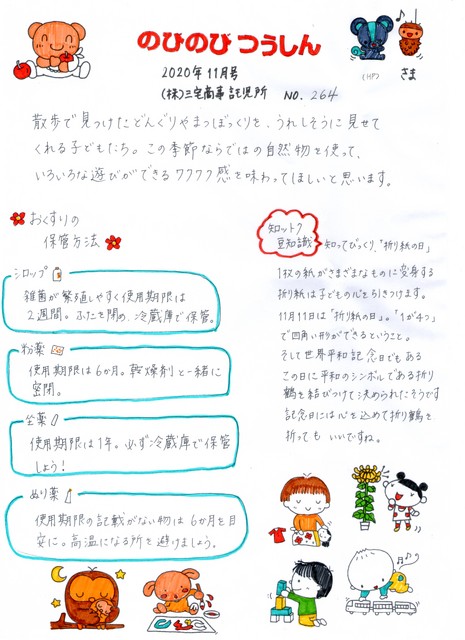 のびのびつうしん
2020年11月号
(株)三宅商事託児所 NO. 264
(HP) さま
散歩で見つけたどんぐりやまつぼっくりを、うれしそうに見せて
くれる子どもたち。この季節ならではの自然物を使って、
いろいろな遊びができるワクワク感を味わってほしいと思います。
おくすりの
保管方法
シロップ
雑菌が繁殖しやすく使用期限は
2週間。ふたを閉め、冷蔵庫で保管。
粉薬
使用期限は6か月。乾燥剤と一緒に
密閉。
坐薬
使用期限は1年。必ず冷蔵庫で保管
しよう!
ぬり薬
使用期限の記載がない物は6か月を目
安に。高温になる所を避けましょう。
知ットク
豆知識
知ってびっくり、「折り紙の日」
1枚の紙がさまざまなものに変身する
折り紙は子どもの心を引きつけます。
11月11日は「折り紙の日」。「1が4つ」
で四角い形ができるということ。
そして世界平和記念日でもある
この日に平和のシンボルである折り
鶴を結びつけて決められたそうです
記念日には心を込めて折り鶴を
折っても いいですね。